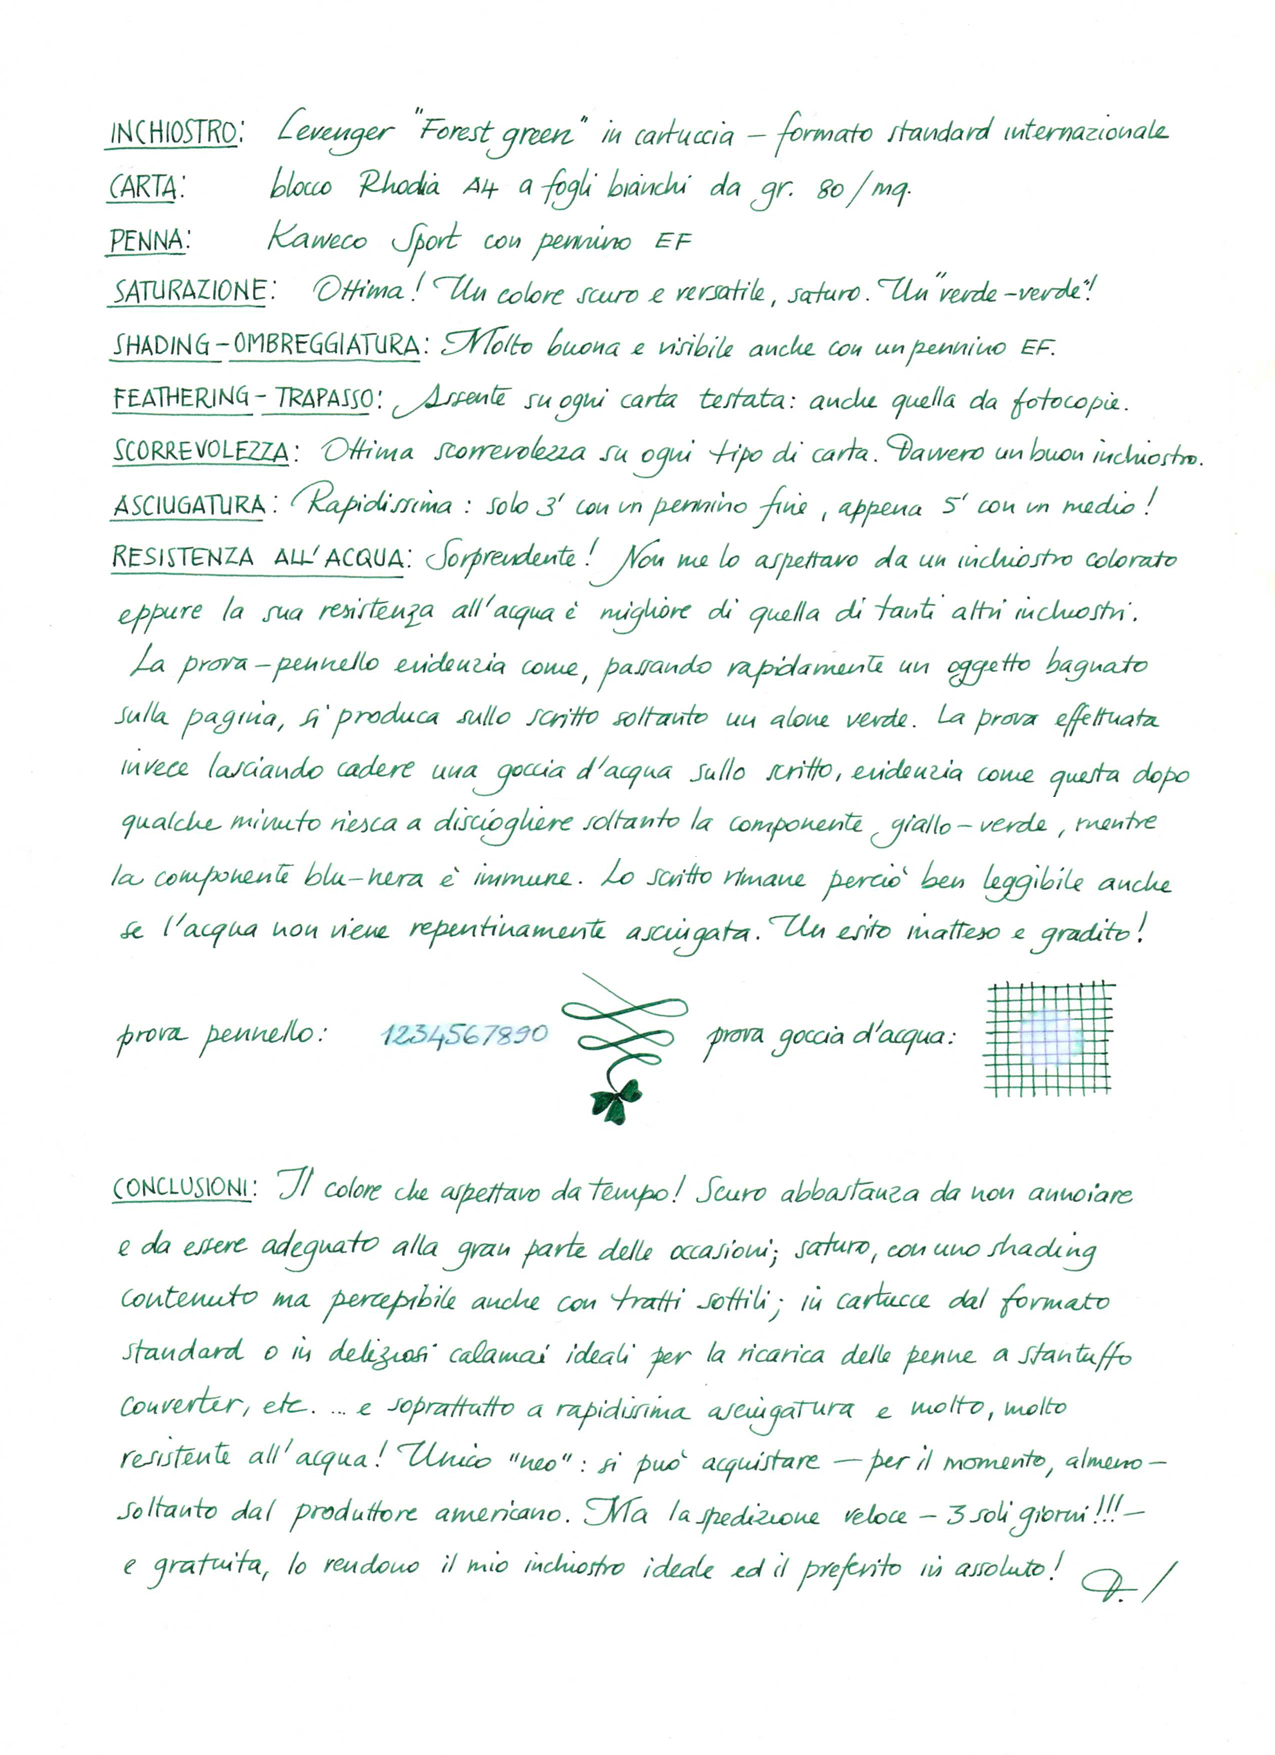 INCHIOSTRO: Levenger "Forest green" in cartuccia – formato standard internazionale
CARTA: blocco Rhodia A4 a fogli bianchi da gr. 80/mq.
PENNA: Kaweco Sport con pennino EF
SATURAZIONE: Ottima! Un colore scuro e versatile, saturo. Un "verde-verde"!
SHADING-OMBREGGIATURA: Molto buona e visibile anche con un pennino EF.
FEATHERING-TRAPASSO: Assente su ogni carta testata: anche quella da fotocopie.
SCORREVOLEZZA: Ottima scorrevolezza su ogni tipo di carta. Davvero un buon inchiostro.
ASCIUGATURA: Rapidissima: solo 3' con un pennino fine, appena 5' con un medio!
RESISTENZA ALL'ACQUA: Sorprendente! Non me lo aspettavo da un inchiostro colorato
eppure la sua resistenza all'acqua è migliore di quella di tanti altri inchiostri.
La prova-pennello evidenzia come, passando rapidamente un oggetto bagnato
sulla pagina, si produca sullo scritto soltanto un alone verde. La prova effettuata
invece lasciando cadere una goccia d'acqua sullo scritto, evidenzia come questa dopo
qualche minuto riesca a disciogliere soltanto la componente giallo-verde, mentre
la componente blu-nera è immune. Lo scritto rimane perciò ben leggibile anche
se l'acqua non viene repentinamente asciugata. Un esito inatteso e gradito!
prova pennello: 1234567890 prova goccia d'acqua:
CONCLUSIONI: Il colore che aspettavo da tempo! Scuro abbastanza da non annoiare
e da essere adeguato alla gran parte delle occasioni; saturo, con uno shading
contenuto ma percepibile anche con tratti sottili; in cartucce dal formato
standard o in deliziosi calamai ideali per la ricarica delle penne a stantuffo
converter, etc. ... e soprattutto a rapidissima asciugatura e molto, molto
resistente all'acqua! Unico "neo": si può acquistare – per il momento, almeno –
soltanto dal produttore americano. Ma la spedizione veloce – 3 soli giorni!!! –
e gratuita, lo rendono il mio inchiostro ideale ed il preferito in assoluto!